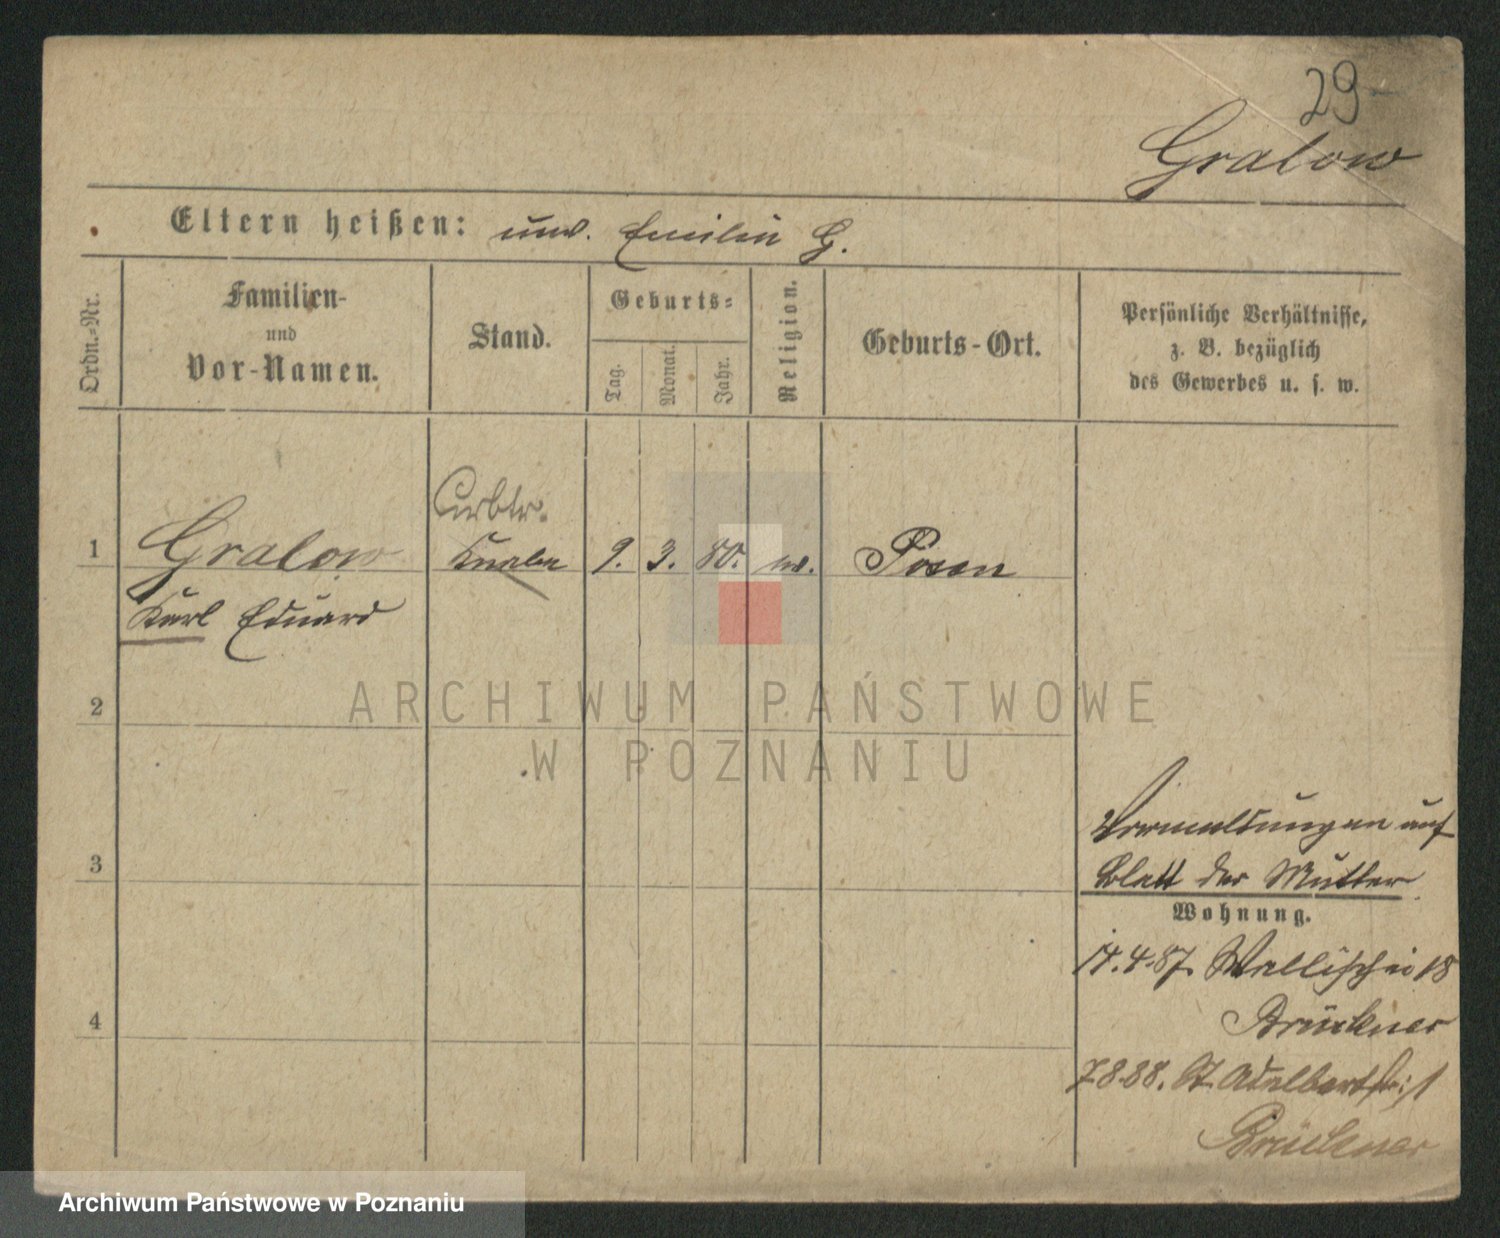 29
Gralow
Eltern heißen: unv. Emilie G.
Ordn.-Nr.
Familien-
und
Vor-Namen.
Stand.
Geburts=
Tag.
Monat.
Jahr.
Religion.
Geburts-Ort.
Persönliche Verhältnisse,
z. B. bezüglich
des Gewerbes u. s. w.
Arbtr.
1 Gralow Knabe 9. 3. 80. ev. Posen
Karl Eduard
2
ARCHIWUM PAŃSTWOWE
W POZNANIU
3
Vermeldungen auf
Blatt der Mutter
Wohnung.
14.4.87. Wallischei 18
Brückner
4
7.8.88. St. Adalbertstr. 1
Brückner
Archiwum Państwowe w Poznaniu